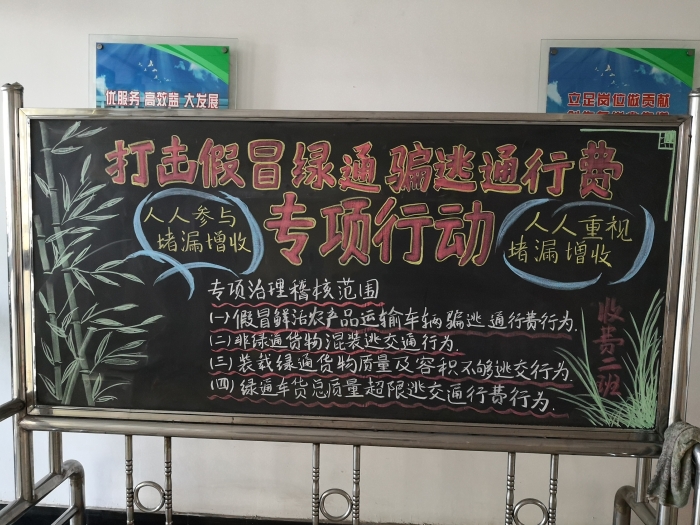 优服务 高效益 大发展
立足岗位做贡献
打击假冒绿通骗逃通行费
专项行动
人人参与
堵漏增收
人人重视
堵漏增收
专项治理稽核范围
(一)假冒鲜活农产品运输车辆骗逃通行费行为.
(二)非绿通货物混装逃交通行为.
(三)装载绿通货物质量及容积不够逃交行为.
(四)绿通车货总质量超限逃交通行费行为.
收费二班